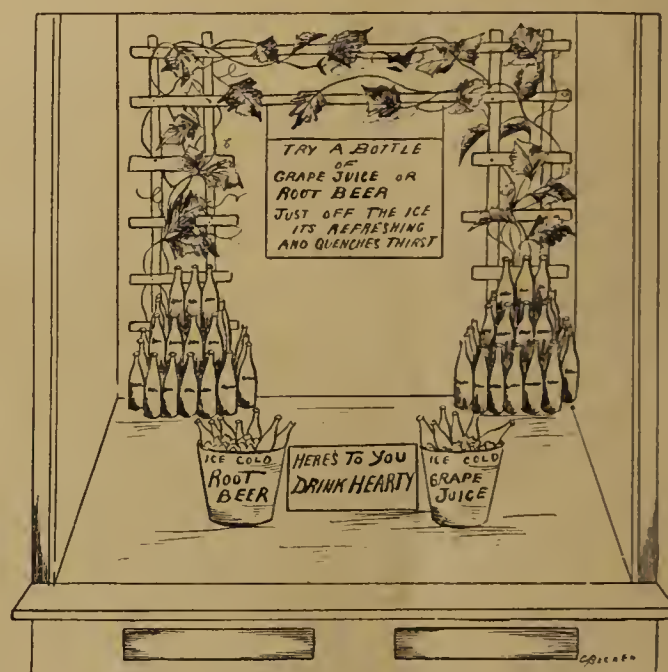 TRY A BOTTLE
OF
GRAPE JUICE OR
ROOT BEER
JUST OFF THE ICE
ITS REFRESHING
AND QUENCHES THIRST
ICE COLD
ROOT
BEER
HERE'S TO YOU
DRINK HEARTY
ICE COLD
GRAPE
JUICE